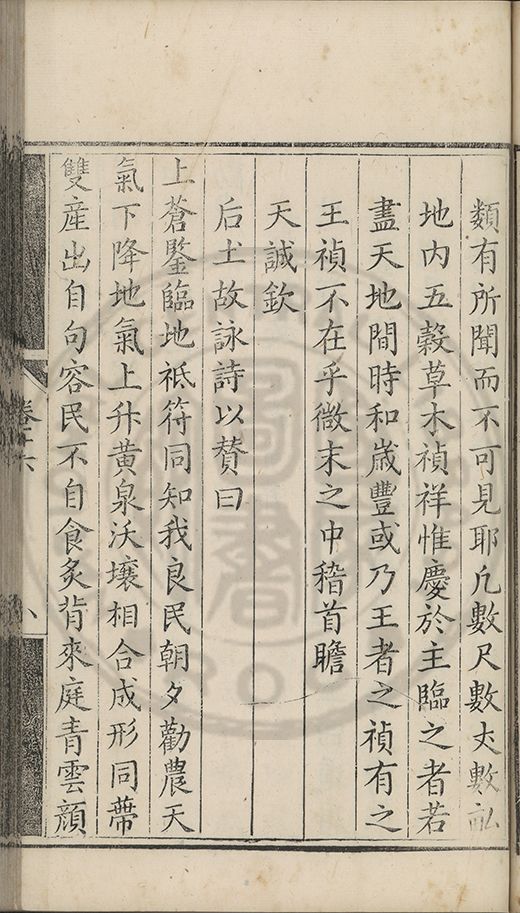 類有所聞而不可見耶凡數尺數丈數畝
地内五穀草木禎祥惟慶於主臨之者若
盡天地間時和歲豐或乃王者之禎有之
王禎不在乎微末之中稽首瞻
天誠欽
后土故詠詩以贊曰
上蒼鑒臨地祇符同知我良民朝夕勸農天
氣下降地氣上升黄泉沃壤相合成形同蔕
雙産出自句容民不自食炙背來庭青雲顏
卷十六
八